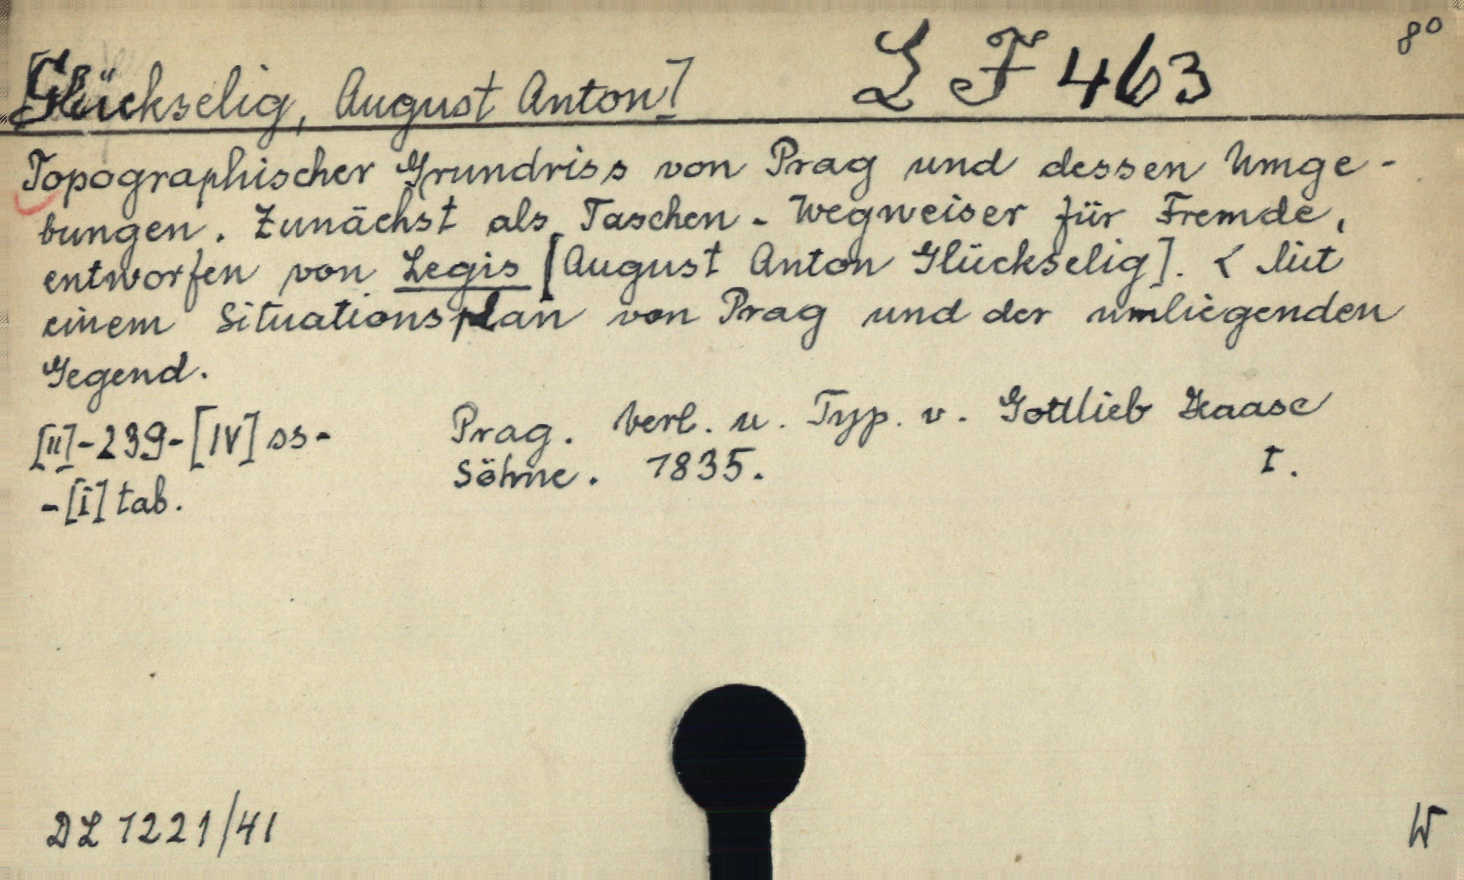 [Glückselig, August Anton] L F 463 8°
Topographischer Grundriss von Prag und dessen Umge-
bungen. Zunächst als Taschen-Wegweiser für Fremde,
entworfen von Legis [August Anton Glückselig]. < Mit
einem Situationsplan von Prag und der umliegenden
Gegend.
[II]-239-[IV] ss-
-[I] tab.
Prag. Verl. u. Typ. v. Gottlieb Haase
Söhne. 1835. I.
DL 1221/41 W